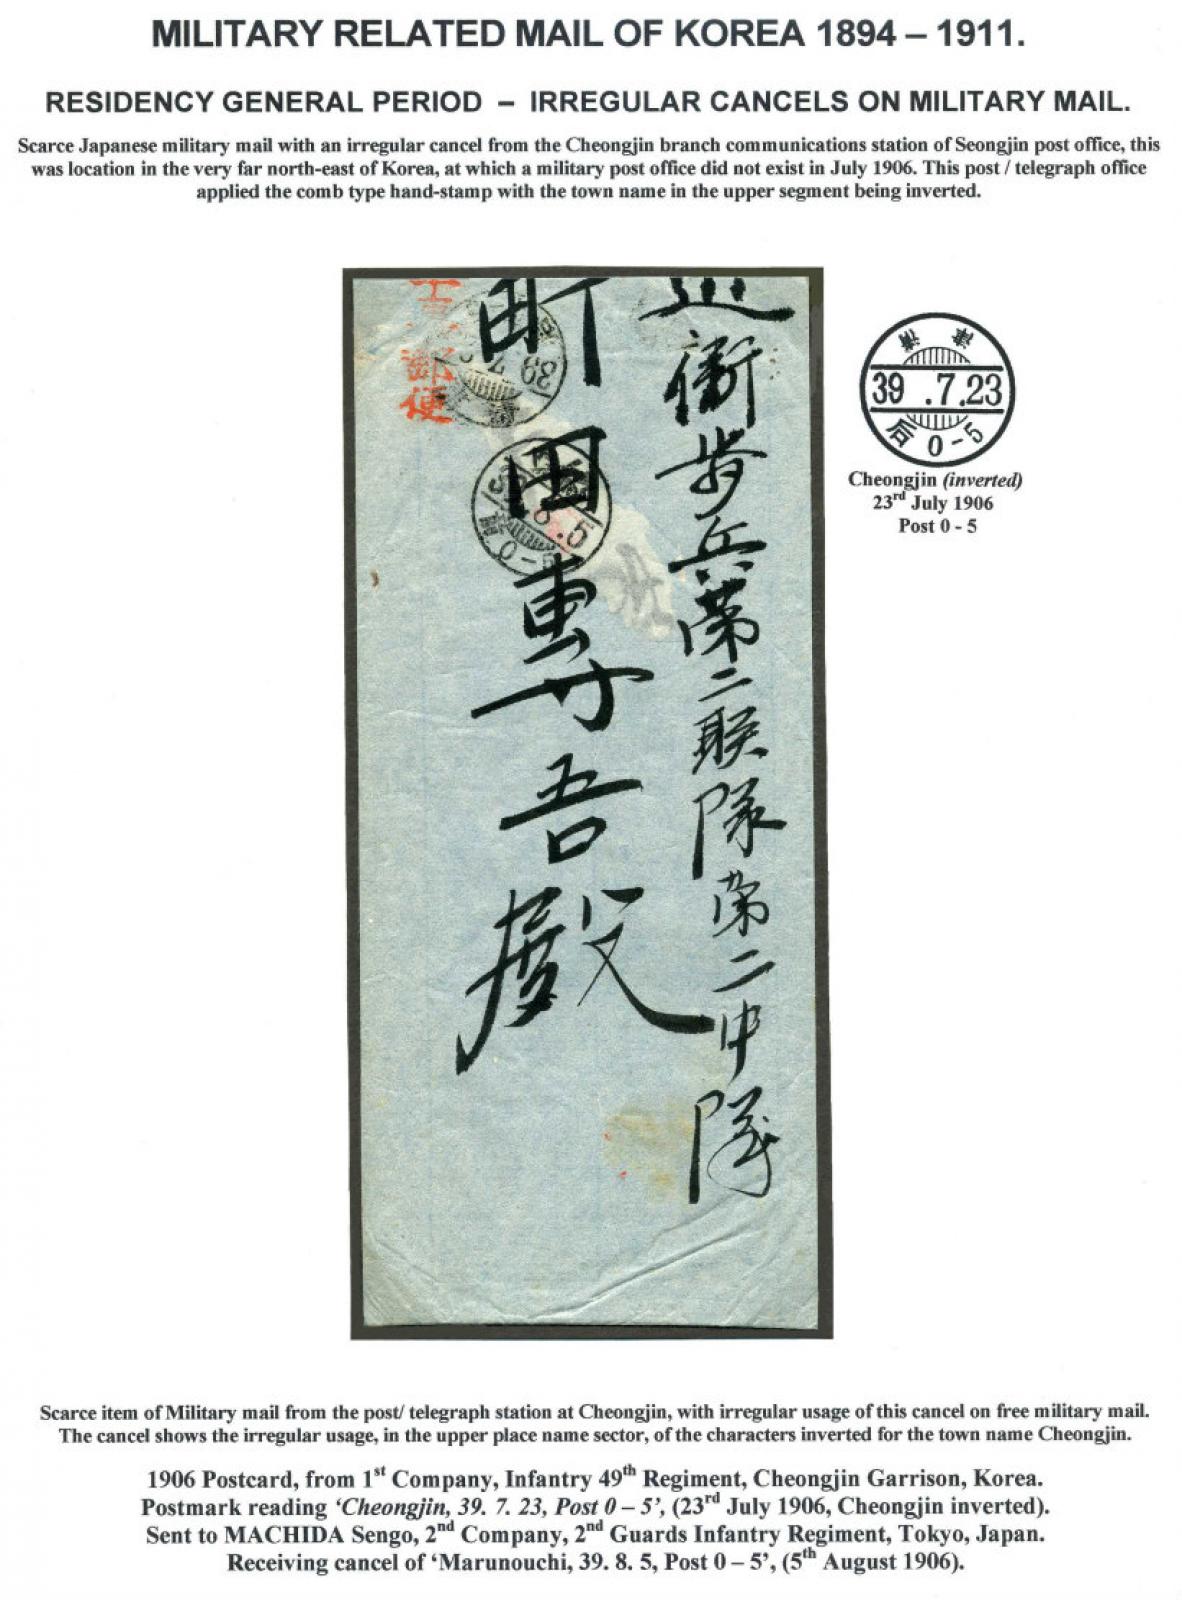 MILITARY RELATED MAIL OF KOREA 1894 – 1911.
RESIDENCY GENERAL PERIOD – IRREGULAR CANCELS ON MILITARY MAIL.
Scarce Japanese military mail with an irregular cancel from the Cheongjin branch communications station of Seongjin post office, this
was location in the very far north-east of Korea, at which a military post office did not exist in July 1906. This post / telegraph office
applied the comb type hand-stamp with the town name in the upper segment being inverted.
近衛歩兵第二联隊第二中隊
町田専吾殿
郵便
39 7
8.5
0-5
津清
39 .7.23
后 0-5
Cheongjin (inverted)
23rd July 1906
Post 0 - 5
Scarce item of Military mail from the post/ telegraph station at Cheongjin, with irregular usage of this cancel on free military mail.
The cancel shows the irregular usage, in the upper place name sector, of the characters inverted for the town name Cheongjin.
1906 Postcard, from 1st Company, Infantry 49th Regiment, Cheongjin Garrison, Korea.
Postmark reading ‘Cheongjin, 39. 7. 23, Post 0 – 5’, (23rd July 1906, Cheongjin inverted).
Sent to MACHIDA Sengo, 2nd Company, 2nd Guards Infantry Regiment, Tokyo, Japan.
Receiving cancel of ‘Marunouchi, 39. 8. 5, Post 0 – 5’, (5th August 1906).